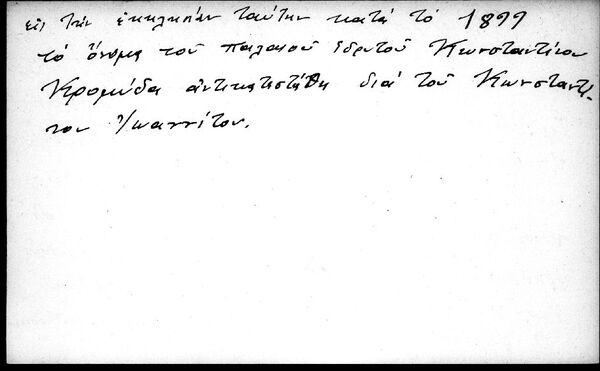 εἰς τὴν ἐκκλησίαν ταύτην κατὰ τὸ 1899
τὸ ὄνομα τοῦ παλαιοῦ ἱδρυτοῦ Κωνσταντίνου
Κρομύδα ἀντικατεστάθη διὰ τοῦ Κωνσταντί-
νου Ἰωαννίτου.